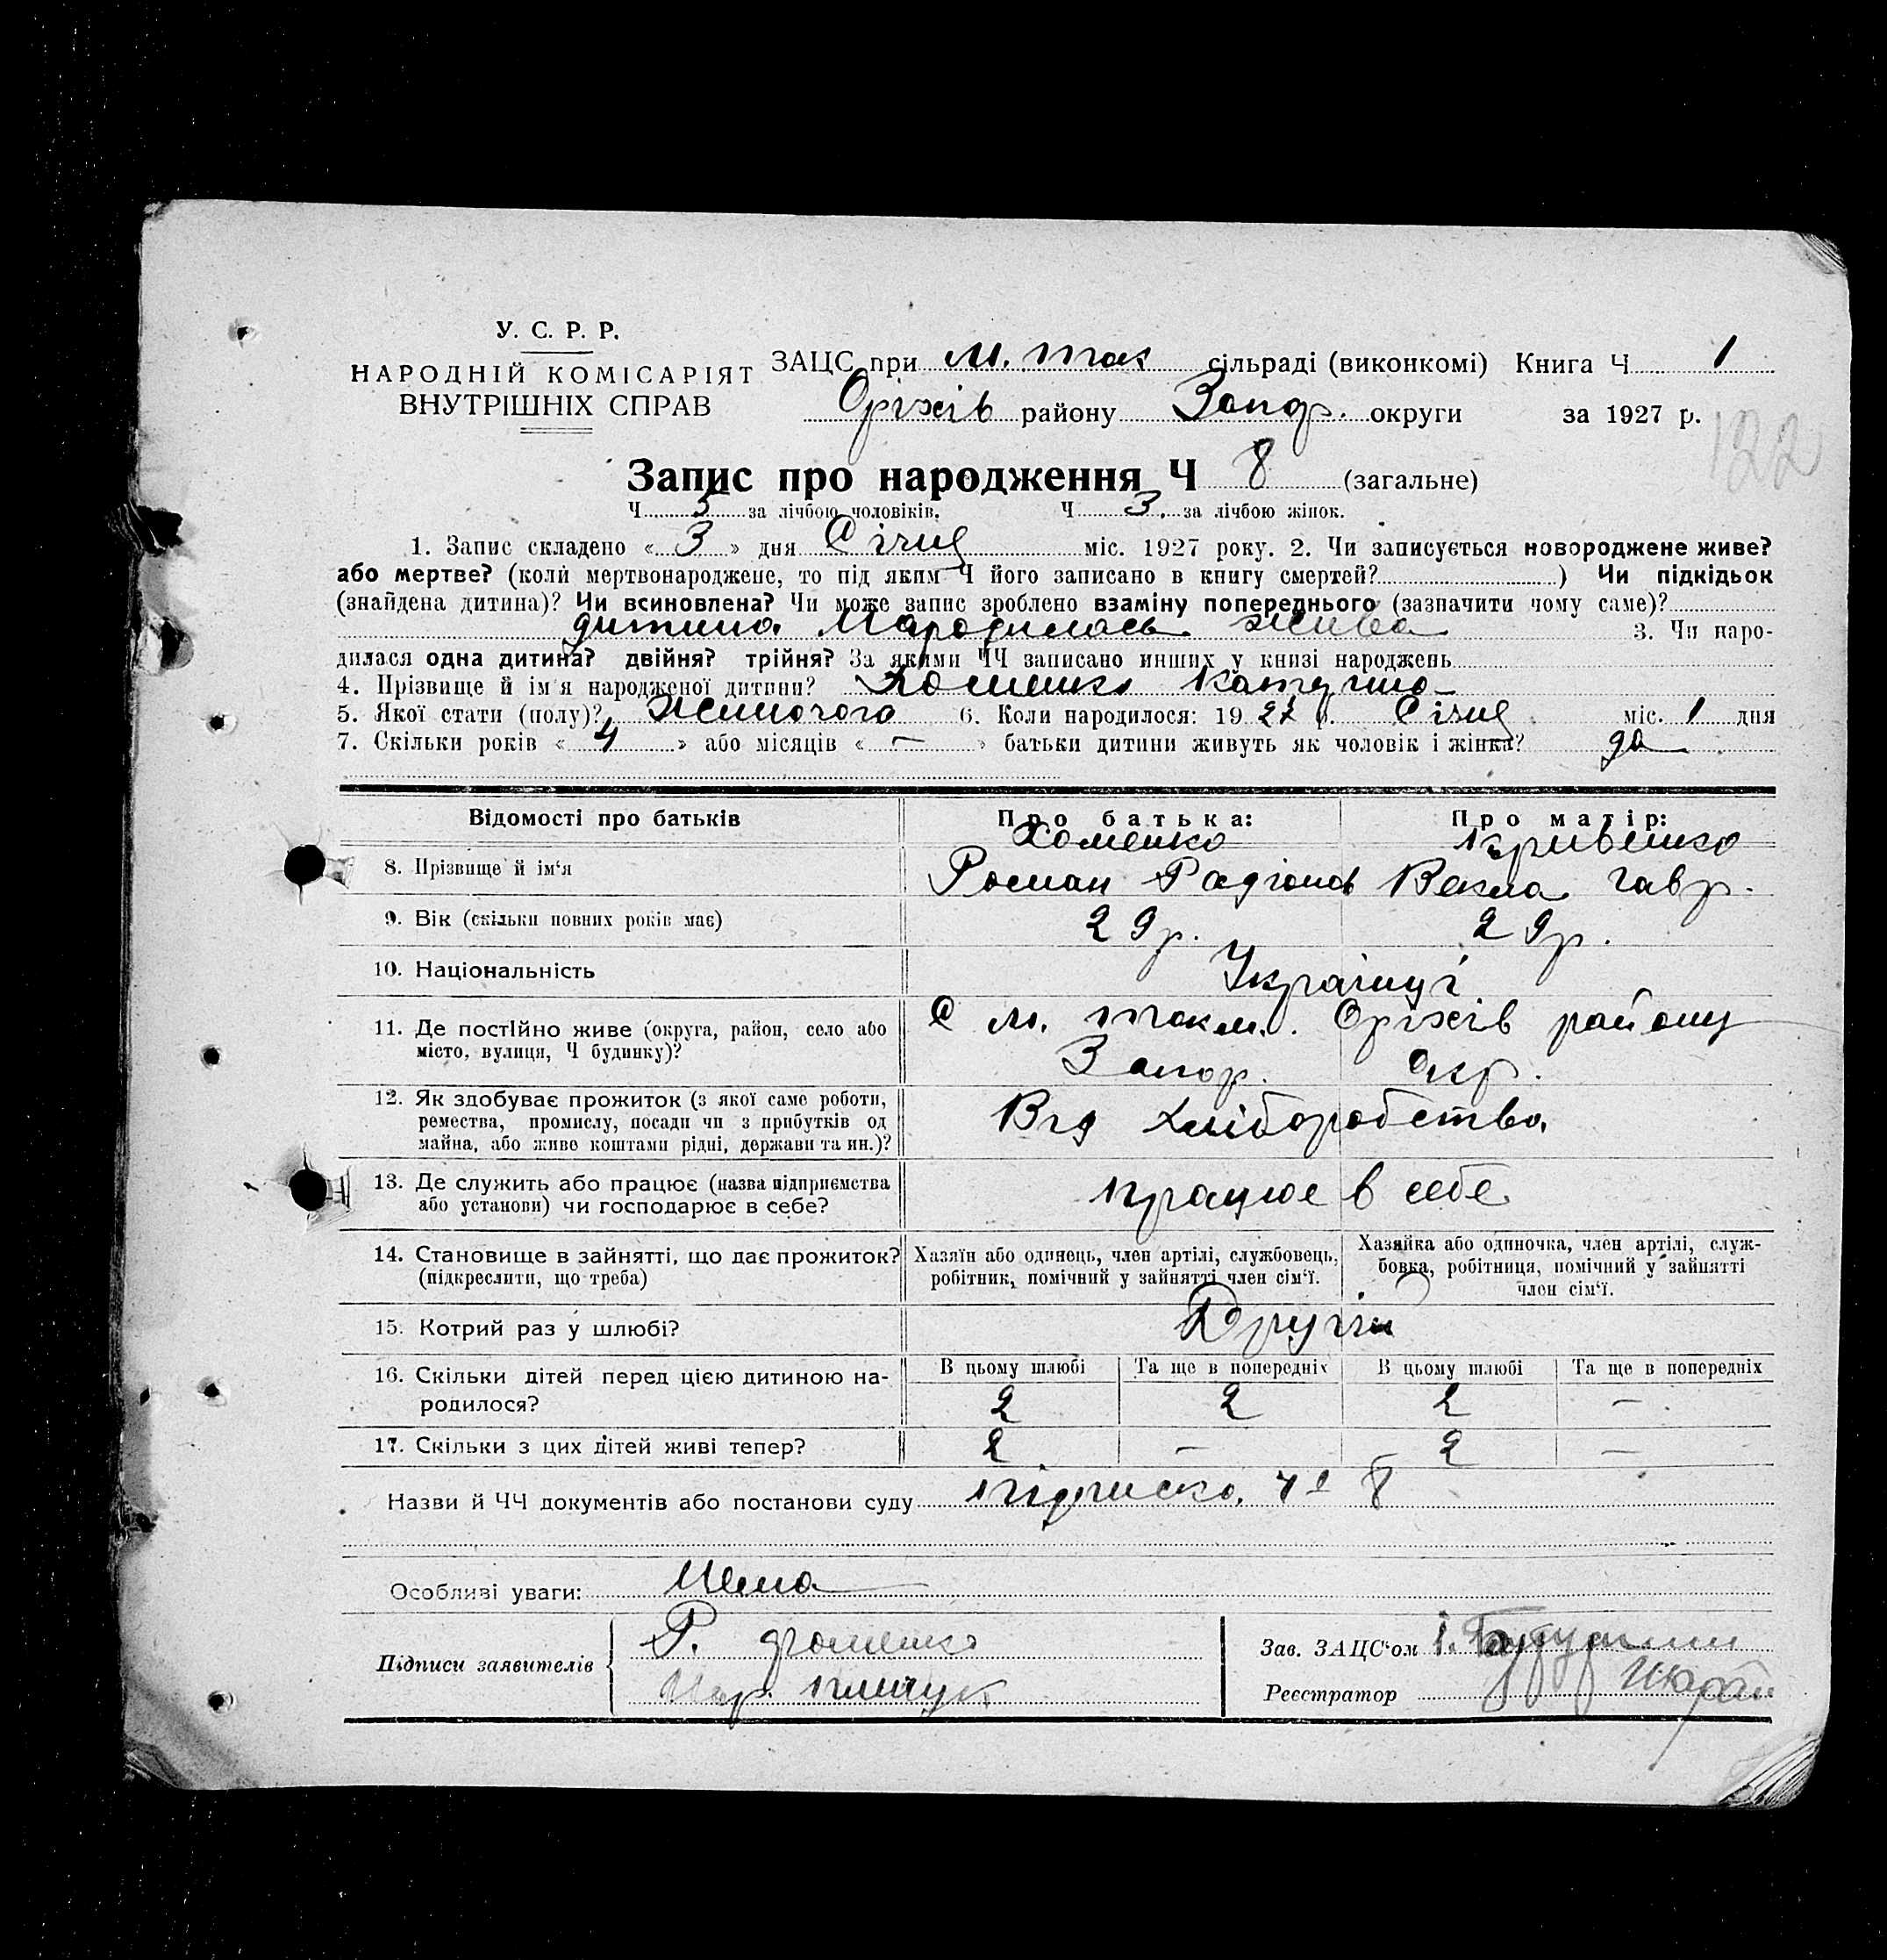 У. С. Р. Р.
НАРОДНІЙ КОМІСАРІЯТ
ВНУТРІШНІХ СПРАВ
ЗАЦС при М. Ток сільраді (виконкомі) Книга Ч 1
Оріхів району Запор. округи за 1927 р.
122
Запис про народження Ч 8 (загальне)
Ч 5 за лічбою чоловіків. Ч 3. за лічбою жінок.
1. Запис складено « 3 » дня Січня міс. 1927 року. 2. Чи записується новороджене живе?
або мертве? (коли мертвонароджене, то під яким Ч його записано в книгу смертей? ) Чи підкідьок
(знайдена дитина)? Чи всиновлена? Чи може запис зроблено взаміну попереднього (зазначити чому саме)?
дитина народилась жива 3. Чи наро-
дилася одна дитина? двійня? трійня? За якими ЧЧ записано инших у книзі народжень
4. Прізвище й ім'я народженої дитини? Хоменко Катерина
5. Якої стати (полу)? Жиночого 6. Коли народилося: 19 27 р. Січня міс. 1 дня
7. Скільки років « 4 » або місяців « — » батьки дитини живуть як чоловік і жінка? да
Відомості про батьків Про батька: Про матір:
Хоменко Кривенко
8. Прізвище й ім'я Роман Радіонов Векла Гавр.
9. Вік (скільки повних років має) 29 р. 29 р.
10. Національність Українці
11. Де постійно живе (округа, район, село або С М. Токм. Оріхів району
місто, вулиця, Ч будинку)? Запор. окр.
12. Як здобуває прожиток (з якої саме роботи,
ремества, промислу, посади чи з прибутків од Від хліборобства
майна, або живе коштами рідні, держави та ин.)?
13. Де служить або працює (назва підприємства працює в себе
або установи) чи господарює в себе?
14. Становище в зайнятті, що дає прожиток? Хазяїн або одинець, член артілі, службовець, Хазяйка або одиночка, член артілі, служ-
(підкреслити, що треба) робітник, помічний у зайнятті член сім'ї. бовка, робітниця, помічний у зайнятті
член сім'ї.
15. Котрий раз у шлюбі? Другій
16. Скільки дітей перед цією дитиною на- В цьому шлюбі Та ще в попередніх В цьому шлюбі Та ще в попередніх
родилося? 2 2 2 —
17. Скільки з цих дітей живі тепер? 2 — 2 —
Назви й ЧЧ документів або постанови суду підписка 8
Особливі уваги: Нема
Підписи заявителів Р. Хоменко
Зав. ЗАЦС'ом
Реєстратор